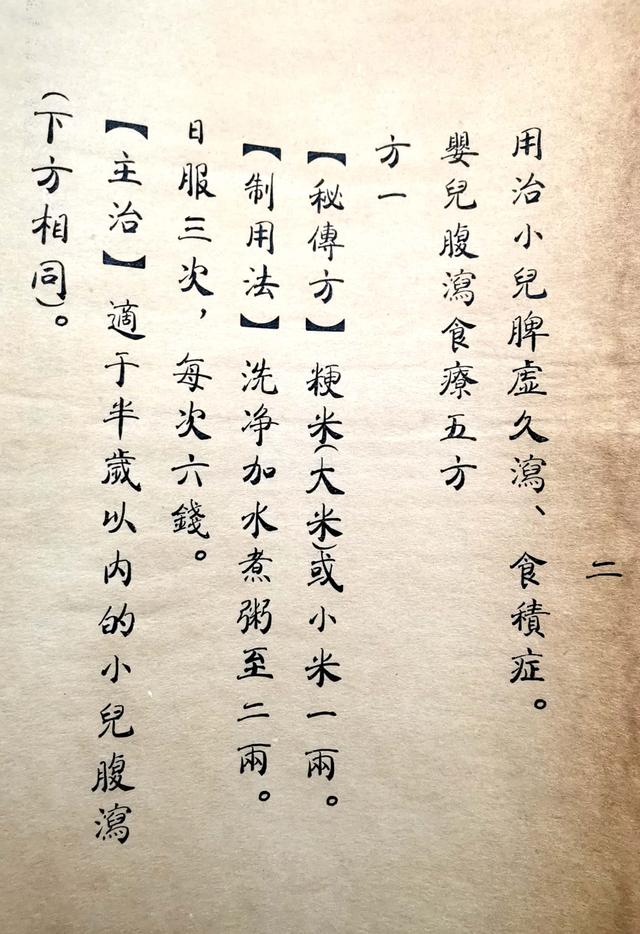 二
用治小兒脾虛久瀉、食積症。
嬰兒腹瀉食療五方
方一
【秘傳方】粳米(大米)或小米一兩。
【制用法】洗净加水煮粥至二兩。
日服三次，每次六錢。
【主治】適于半歲以内的小兒腹瀉
(下方相同)。